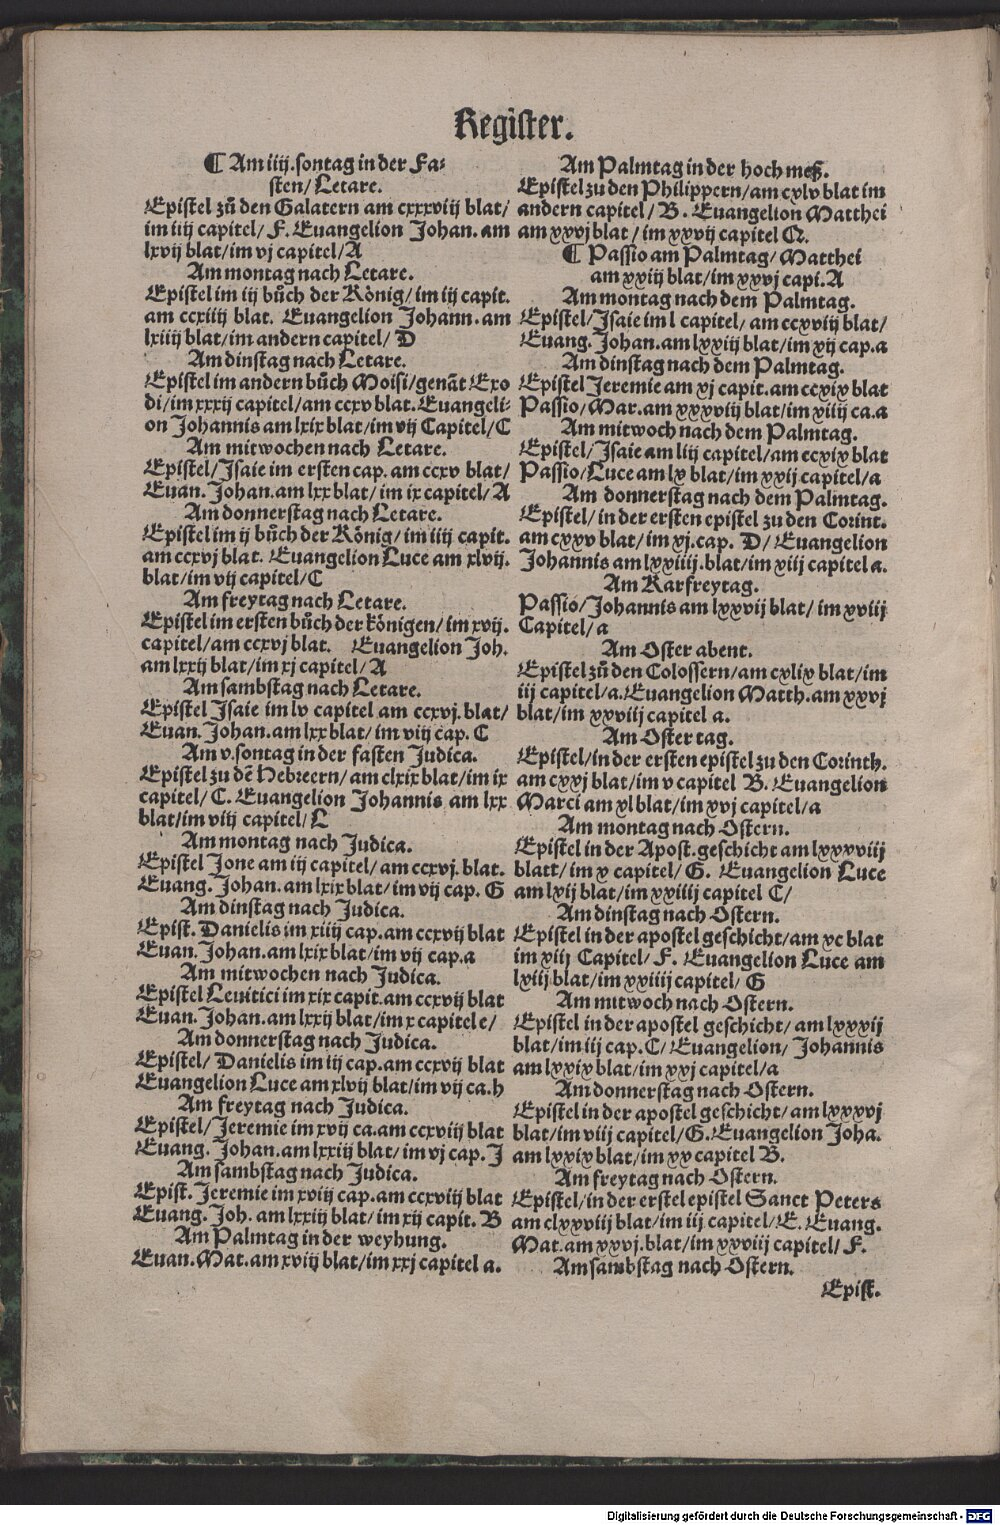 Register.
¶ Am iiij. sontag in der Fa-
sten/ Letare.
Epistel zů den Galatern am cxxxviij blat/
im iiij capitel/ F. Euangelion Johan. am
lxvij blat/im vj capitel/A
Am montag nach Letare.
Epistel im iij bůch der König/im iij capit.
am ccxiiij blat. Euangelion Johann. am
lxiiij blat/im andern capitel/ D
Am dinstag nach Letare.
Epistel im andern bůch Moisi/genāt Exo
di/im xxxij capitel/am ccxv blat. Euangeli-
on Johannis am lxix blat/im vij Capitel/C
Am mitwochen nach Letare.
Epistel/Jsaie im ersten cap. am ccxv blat/
Euan. Johan. am lxx blat/ im ix capitel/A
Am donnerstag nach Letare.
Epistel im ij bůch der König/im iiij capit.
am ccxvj blat. Euangelion Luce am xlvij.
blat/im vij capitel/C
Am freytag nach Letare.
Epistel im ersten bůch der königen/im xvij.
capitel/am ccxvj blat. Euangelion Joh.
am lxxij blat/im xj capitel/A
Am sambstag nach Letare.
Epistel Jsaie im lv capitel am ccxvj. blat/
Euan. Johan. am lxx blat/im viij cap. C
Am v. sontag in der fasten Judica.
Epistel zu dē Hebreern/am clxix blat/im ix
capitel/ C. Euangelion Johannis am lxx
blat/im viij capitel/ L
Am montag nach Judica.
Epistel Jone am iij capitel/am ccxvj. blat.
Euang. Johan. am lxix blat/im vij cap. G
Am dinstag nach Judica.
Epist. Danielis im xiiij cap. am ccxvij blat
Euan. Johan. am lxix blat/im vij cap. a
Am mitwochen nach Judica.
Epistel Leuitici im xix capit. am ccxvij blat
Euan. Johan. am lxxij blat/im x capitel e/
Am donnerstag nach Judica.
Epistel/ Danielis im iij cap. am ccxvij blat
Euangelion Luce am xlvij blat/im vij ca. h
Am freytag nach Judica.
Epistel/Jeremie im xvij ca. am ccxviij blat
Euang. Johan. am lxxiij blat/im vj cap. J
Am sambstag nach Judica.
Epist. Jeremie im xviij cap. am ccxviij blat
Euang. Joh. am lxxiij blat/im xij capit. B
Am Palmtag in der weyhung.
Euan. Mat. am xviij blat/im xxj capitel a.
Am Palmtag in der hoch meß.
Epistel zu den Philippern/am cxlv blat im
andern capitel/B. Euangelion Matthei
am xxvj blat/im xxvij capitel Q.
¶ Passio am Palmtag/ Matthei
am xxiij blat/im xxvj capi. A
Am montag nach dem Palmtag.
Epistel/Jsaie im l capitel/ am ccxviij blat/
Euang. Johan. am lxxiij blat/im xij cap. a
Am dinstag nach dem Palmtag.
Epistel Jeremie am xj capit. am ccxix blat
Passio/Mar. am xxxviij blat/im xiiij ca. a
Am mitwoch nach dem Palmtag.
Epistel/Jsaie am liij capitel/am ccxix blat
Passio/Luce am lx blat/im xxij capitel/a
Am donnerstag nach dem Palmtag.
Epistel/ in der ersten epistel zu den Corint.
am cxxv blat/im xj. cap. D/ Euangelion
Johannis am lxxiiij. blat/im xiij capitel a.
Am Karfreytag.
Passio/Johannis am lxxvij blat/ im xviij
Capitel/a
Am Oster abent.
Epistel zů den Colossern/am cxlix blat/im
iij capitel/a. Euangelion Matth. am xxvj
blat/im xxviij capitel a.
Am Oster tag.
Epistel/in der ersten epistel zu den Corinth.
am cxxj blat/im v capitel B. Euangelion
Marci am xl blat/im xvj capitel/a
Am montag nach Ostern.
Epistel in der Apost. geschicht am lxxxviij
blatt/im x capitel/ G. Euangelion Luce
am lxij blat/im xxiiij capitel C/
Am dinstag nach Ostern.
Epistel in der apostel geschicht/am xc blat
im xiij Capitel/ F. Euangelion Luce am
lxiij blat/im xxiiij capitel/ G
Am mitwoch nach Ostern.
Epistel in der apostel geschicht/ am lxxxij
blat/im iij cap. C/ Euangelion/ Johannis
am lxxix blat/im xxj capitel/a
Am donnerstag nach Ostern.
Epistel in der apostel geschicht/am lxxxvj
blat/im viij capitel/G. Euangelion Joha.
am lxxix blat/im xx capitel B.
Am freytag nach Ostern.
Epistel/in der erstel epistel Sanct Peters
am clxxviij blat/im iij capitel/E. Euang.
Mat. am xxvj. blat/im xxviij capitel/ F.
Am sambstag nach Ostern.
Epist.
Digitalisierung gefördert durch die Deutsche Forschungsgemeinschaft - DFG